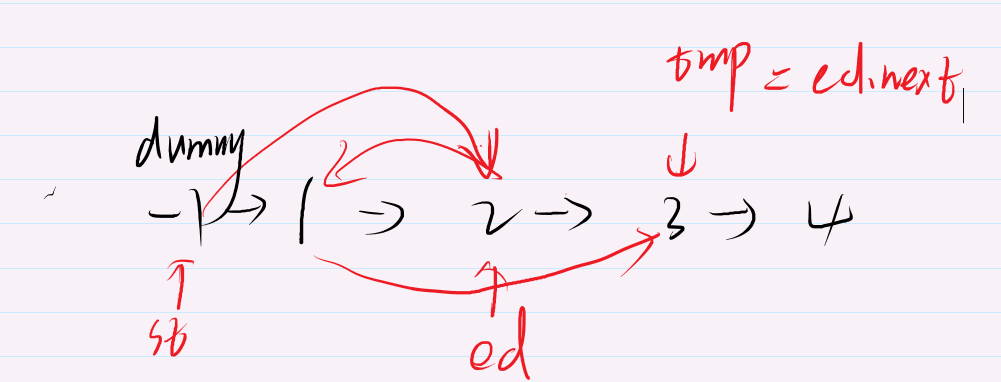 tmp = ed.next
dummy
-1 → 1 → 2 → 3 → 4
st
ed